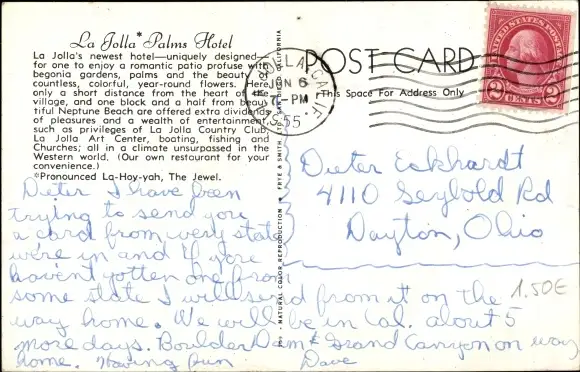 La Jolla* Palms Hotel
La Jolla's newest hotel—uniquely designed—
for one to enjoy a romantic patio profuse with
begonia gardens, palms and the beauty of
countless, colorful, year-round flowers. Here,
only a short distance from the heart of the
village, and one block and a half from beau-
tiful Neptune Beach are offered extra dividends
of pleasures and a wealth of entertainment,
such as privileges of La Jolla Country Club,
La Jolla Art Center, boating, fishing and
Churches; all in a climate unsurpassed in the
Western world. (Our own restaurant for your
convenience.)
*Pronounced La-Hoy-yah, The Jewel.
Dieter I have been
trying to send you
a card from every state
we're in and if you
haven't gotten one from
some state I will send from it on the
way home. We will be in Cal. about 5
more days. Boulder Dam & Grand Canyon on way
home. Having fun
Dave
POST CARD
This Space For Address Only
LA JOLLA, CALIF.
JUN 6
-PM
1955
UNITED STATES POSTAGE
2 CENTS 2
Dieter Eckhardt
4110 Seybold Rd
Dayton, Ohio
1.50€
NATURAL COLOR REPRODUCTION
FRYE & SMITH, LTD., SAN DIEGO, CALIFORNIA